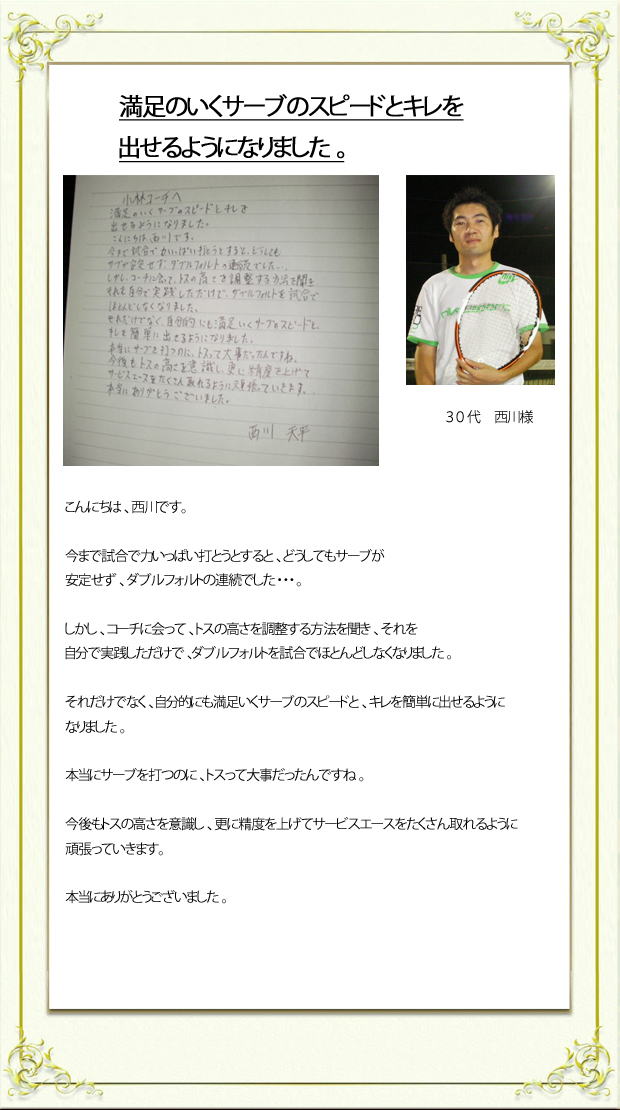 満足のいくサーブのスピードとキレを
出せるようになりました。
小林コーチへ
満足のいくサーブのスピードとキレを
出せるようになりました。
こんにちは、西川です。
今まで試合で力いっぱい打とうとすると、どうしても
サーブが安定せず、ダブルフォルトの連続でした…。
しかし、コーチに会って、トスの高さを調整する方法を聞き
それを自分で実践しただけで、ダブルフォルトを試合で
ほとんどしなくなりました。
それだけでなく、自分的にも満足いくサーブのスピードと、
キレを簡単に出せるようになりました。
本当にサーブを打つのに、トスって大事だったんですね。
今後もトスの高さを意識し、更に精度を上げて
サービスエースをたくさん取れるように頑張っていきます。
本当にありがとうございました。
西川
30代 西川様
こんにちは、西川です。
今まで試合で力いっぱい打とうとすると、どうしてもサーブが
安定せず、ダブルフォルトの連続でした・・・。
しかし、コーチに会って、トスの高さを調整する方法を聞き、それを
自分で実践しただけで、ダブルフォルトを試合でほとんどしなくなりました。
それだけでなく、自分的にも満足いくサーブのスピードと、キレを簡単に出せるように
なりました。
本当にサーブを打つのに、トスって大事だったんですね。
今後もトスの高さを意識し、更に精度を上げてサービスエースをたくさん取れるように
頑張っていきます。
本当にありがとうございました。